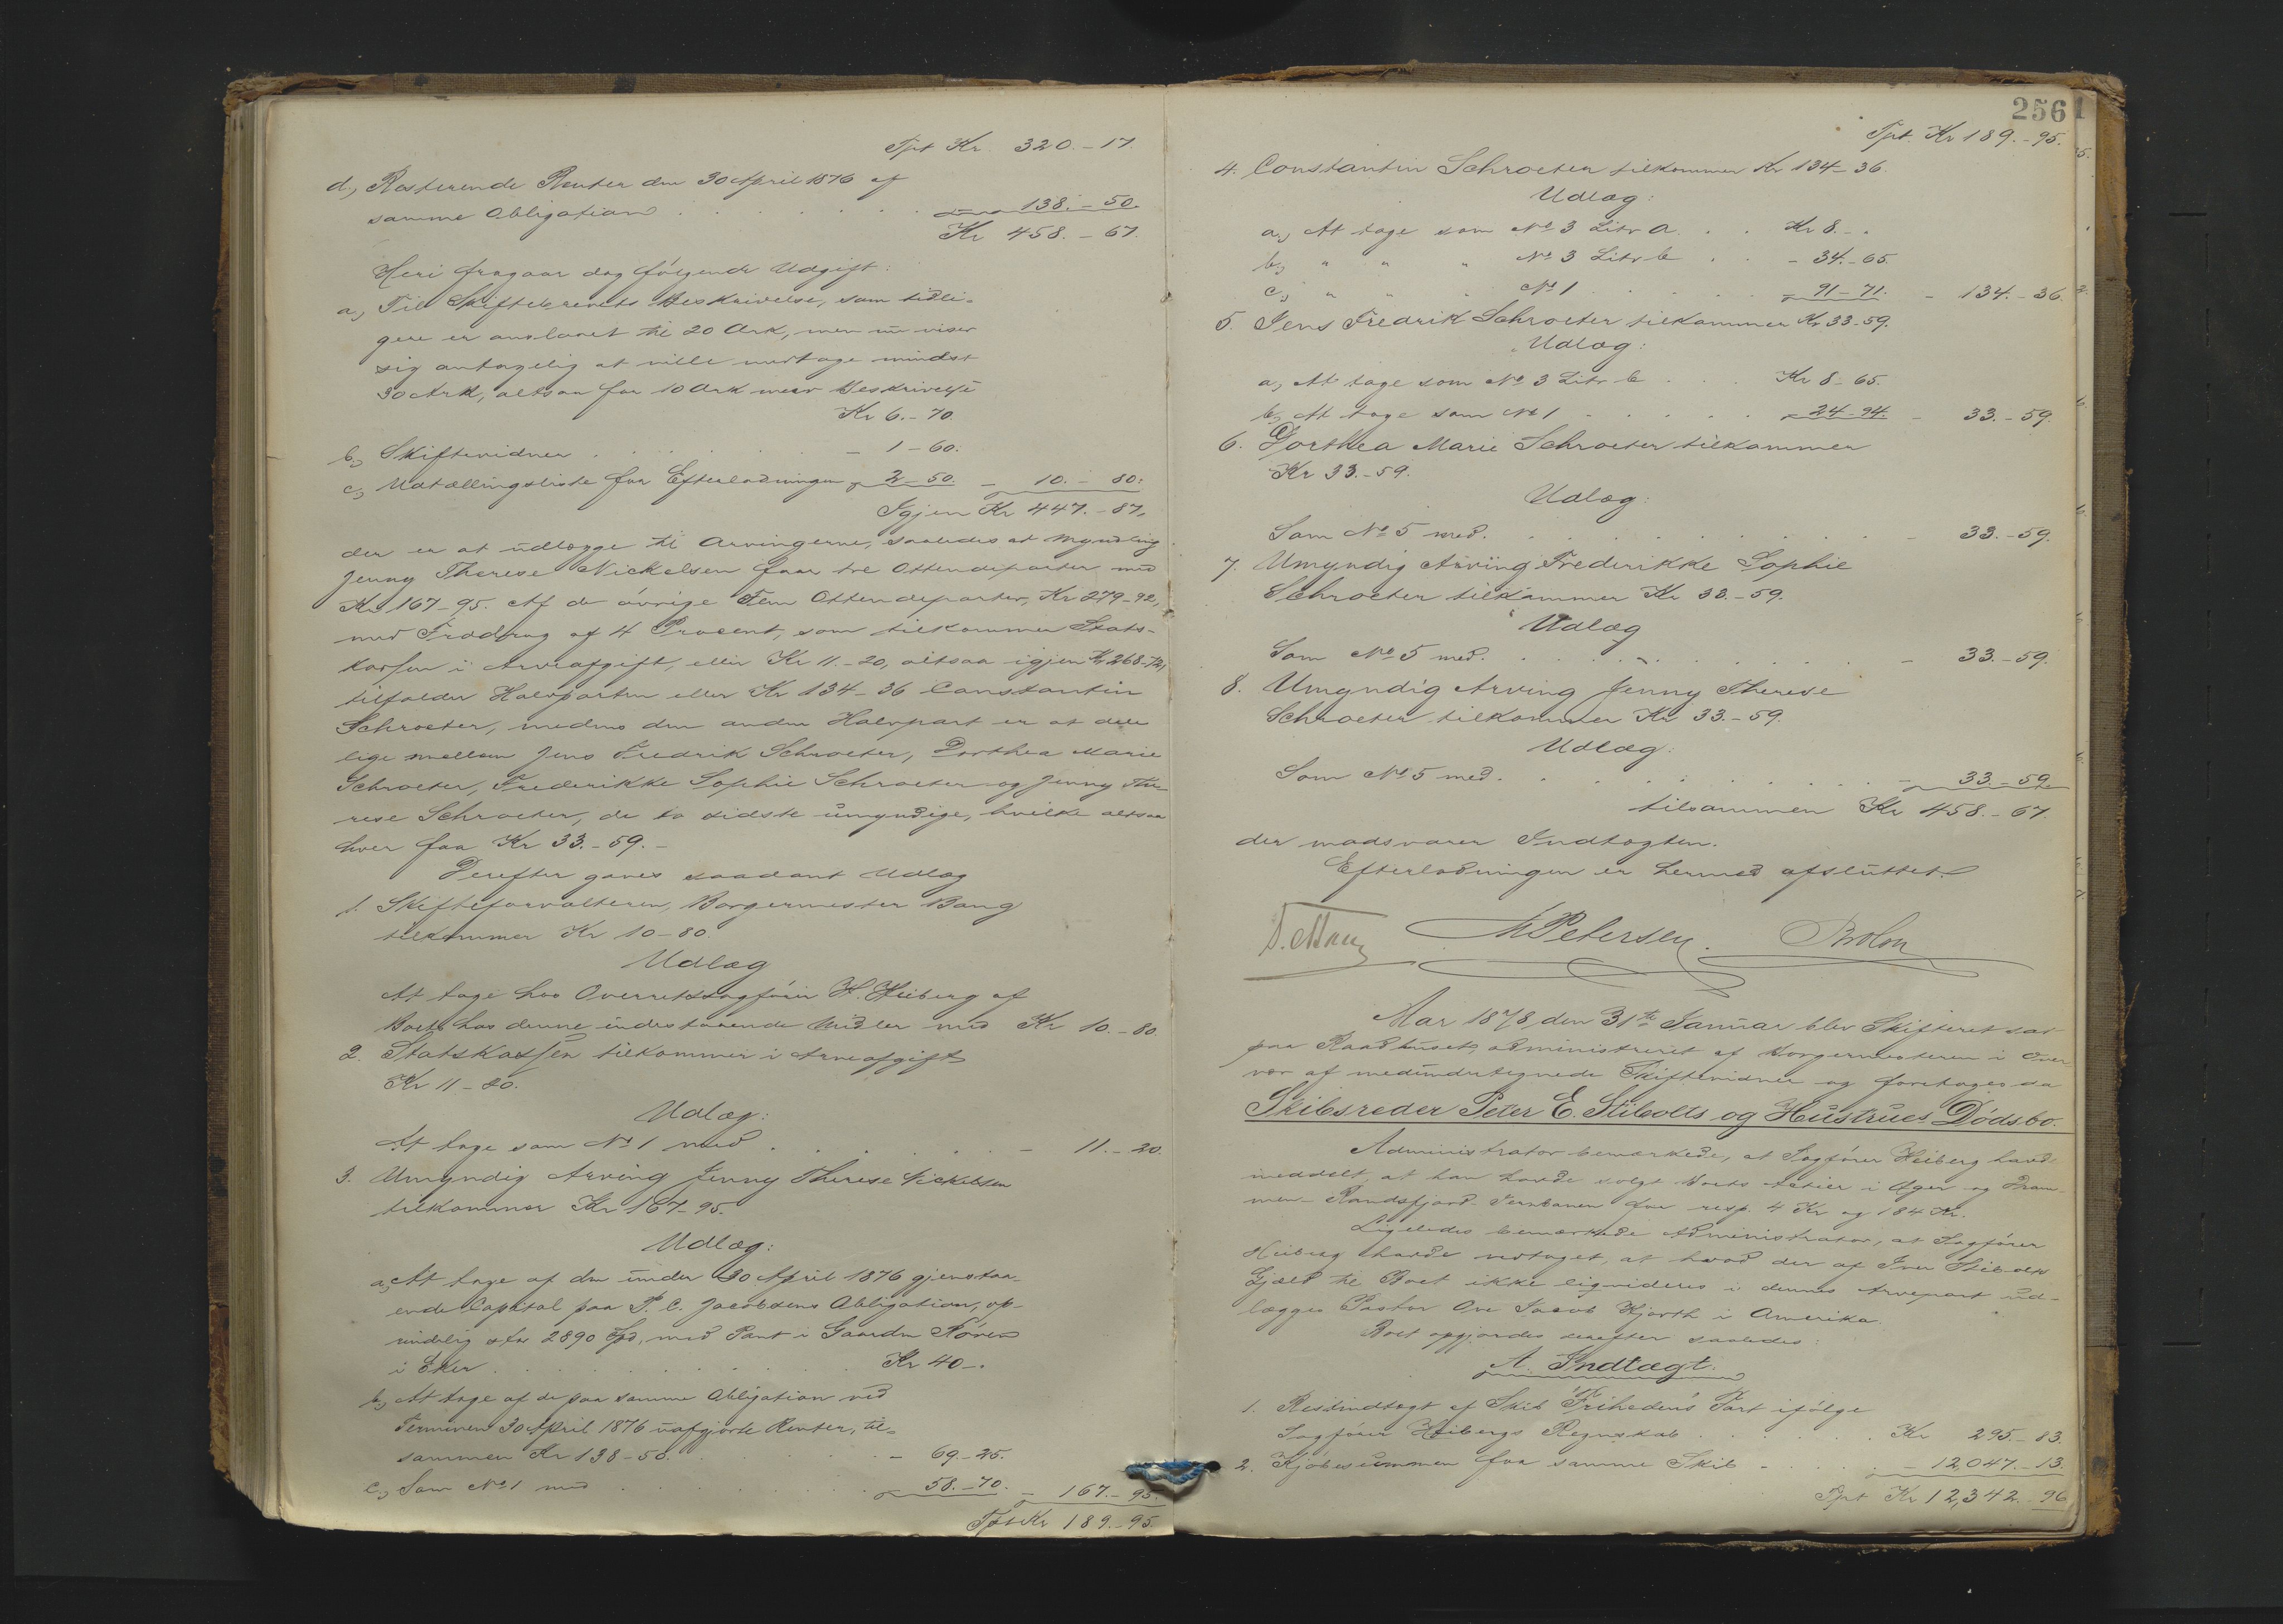 Tpt Kr. 320.-17.
d, Resterende Renter den 30 April 1876 af
samme Obligation . . . . . . - 138.-50.
Kr 458.-67.
Heri fragaar dog følgende Udgift:
a, Til Skiftebrevets Beskrivelse, som tidli-
gere er anslaaet til 20 Ark, men nu viser
sig antagelig at ville medtage mindst
30 Ark, altsaa for 10 Ark meer Beskrivelse
Kr 6.-70
b, Skiftevidner . . . . . - 1-60.
c, Udtællingsliste for Efterlodningen - 2-50. - 10.-80.
Igjen Kr 447.-87,
der er at udlægge til Arvingerne, saaledes at Myndling
Jenny Therese Nickelsen faar tre Ottendeparter med
Kr 167-95. Af de øvrige Fem Ottendeparter, Kr 279-92,
med Fradrag af 4 Procent, som tilkommer Stats-
kassen i Arveafgift, eller Kr 11.-20, altsaa igjen Kr 268-72,
tilfalder Halvparten eller Kr 134-36 Constantin
Schroeter, medens den anden Halvpart er at dele
lige mellem Jens Fredrik Schroeter, Dorthea Marie
Schroeter, Frederikke Sophie Schroeter og Jenny The-
rese Schroeter, de to sidste umyndige, hvilke altsaa
hver faa Kr 33.-59.-
Derefter gaves saadant Udlæg
1. Skifteforvalteren, Borgermester Bang
tilkommer Kr 10-80.
Udlæg
At tage hos Overretssagfører H. Heiberg af
Boets hos denne indestaaende Midler med Kr 10.-80.
2. Statskassen tilkommer i Arveafgift
Kr 11-20.
Udlæg:
At tage som No 1 med . . . . . - 11.-20.
3. Umyndig Arving Jenny Therese Nickelsen
tilkommer Kr 167-95.
Udlæg:
a, At tage af den under 30 April 1876 gjenstaa-
ende Capital paa P. C. Jacobsens Obligation, op-
rindelig stor 2890 Spd, med Pant i Gaarden
i Eker . . . . . . Kr 40-.
b, At tage af de paa samme Obligation ved
Terminen 30 April 1876 uafgjorte Renter, til-
sammen Kr 138-50. . . . . - 69.-25.
c, Som No 1 med . . . . . - 58.-70. - 167.-95.
Tpt Kr 189.-95.
256
Tpt. Kr 189.-95.
4. Constantin Schroeter tilkommer Kr 134-36.
Udlæg:
a, At tage som No 3 Litr a. . . Kr 8.-.
b, " " " No 3 Litr b . . - 34.-65.
c, " " " No 1 . . . . - 91-71. - 134.-36.
5. Jens Fredrik Schroeter tilkommer Kr 33-59.
Udlæg:
a, At tage som No 3 Litr b . . . Kr 8-65.
b, At tage som No 1 . . . . . - 24-94. - 33.-59.
6. Dorthea Marie Schroeter tilkommer
Kr 33.-59.
Udlæg:
Som No 5 med. . . . . . . - 33.-59.
7. Umyndig Arving Frederikke Sophie
Schroeter tilkommer Kr 33.-59.
Udlæg
Som No 5 med. . . . . . . - 33.-59.
8. Umyndig Arving Jenny Therese
Schroeter tilkommer Kr 33.-59.
Udlæg:
Som No 5 med. . . . . . . - 33.-59.
tilsammen Kr 458.-67.
der modsvarer Indtægten.
Efterlodningen er hermed afsluttet.
MPetersen.
Aar 1878, den 31te Januar blev Skifteret sat
paa Raadhuset, administreret af Borgermesteren i Over-
vær af medundertegnede Skiftevidner og foretoges da
Skibsreder Peter E. Stibolts og Hustrues Dødsbo.
Administrator bemærkede, at Sagfører Heiberg havde
meddelt, at han havde solgt Boets Actier i Ager og Dram-
men-Randsfjord-Jernbanen for resp. 4 Kr og 184 Kr.
Ligeledes bemærkede Administrator, at Sagfører
Heiberg havde vedtaget, at hvad der af Iver Stibolts
Gjæld til Boet ikke liquideres i dennes Arvepart ud-
lægges Pastor Ove Jacob Hjorth i Amerika.
Boet opgjordes derefter saaledes:
A. Indtægt.
1. Restindtægt af Skib "Friheden's" Part ifølge
Sagfører Heibergs Regnskab . . . . . Kr 295.-83.
2. Kjøbesummen for samme Skib - . . . - 12,047.-13.
Tpt Kr 12,342.-96